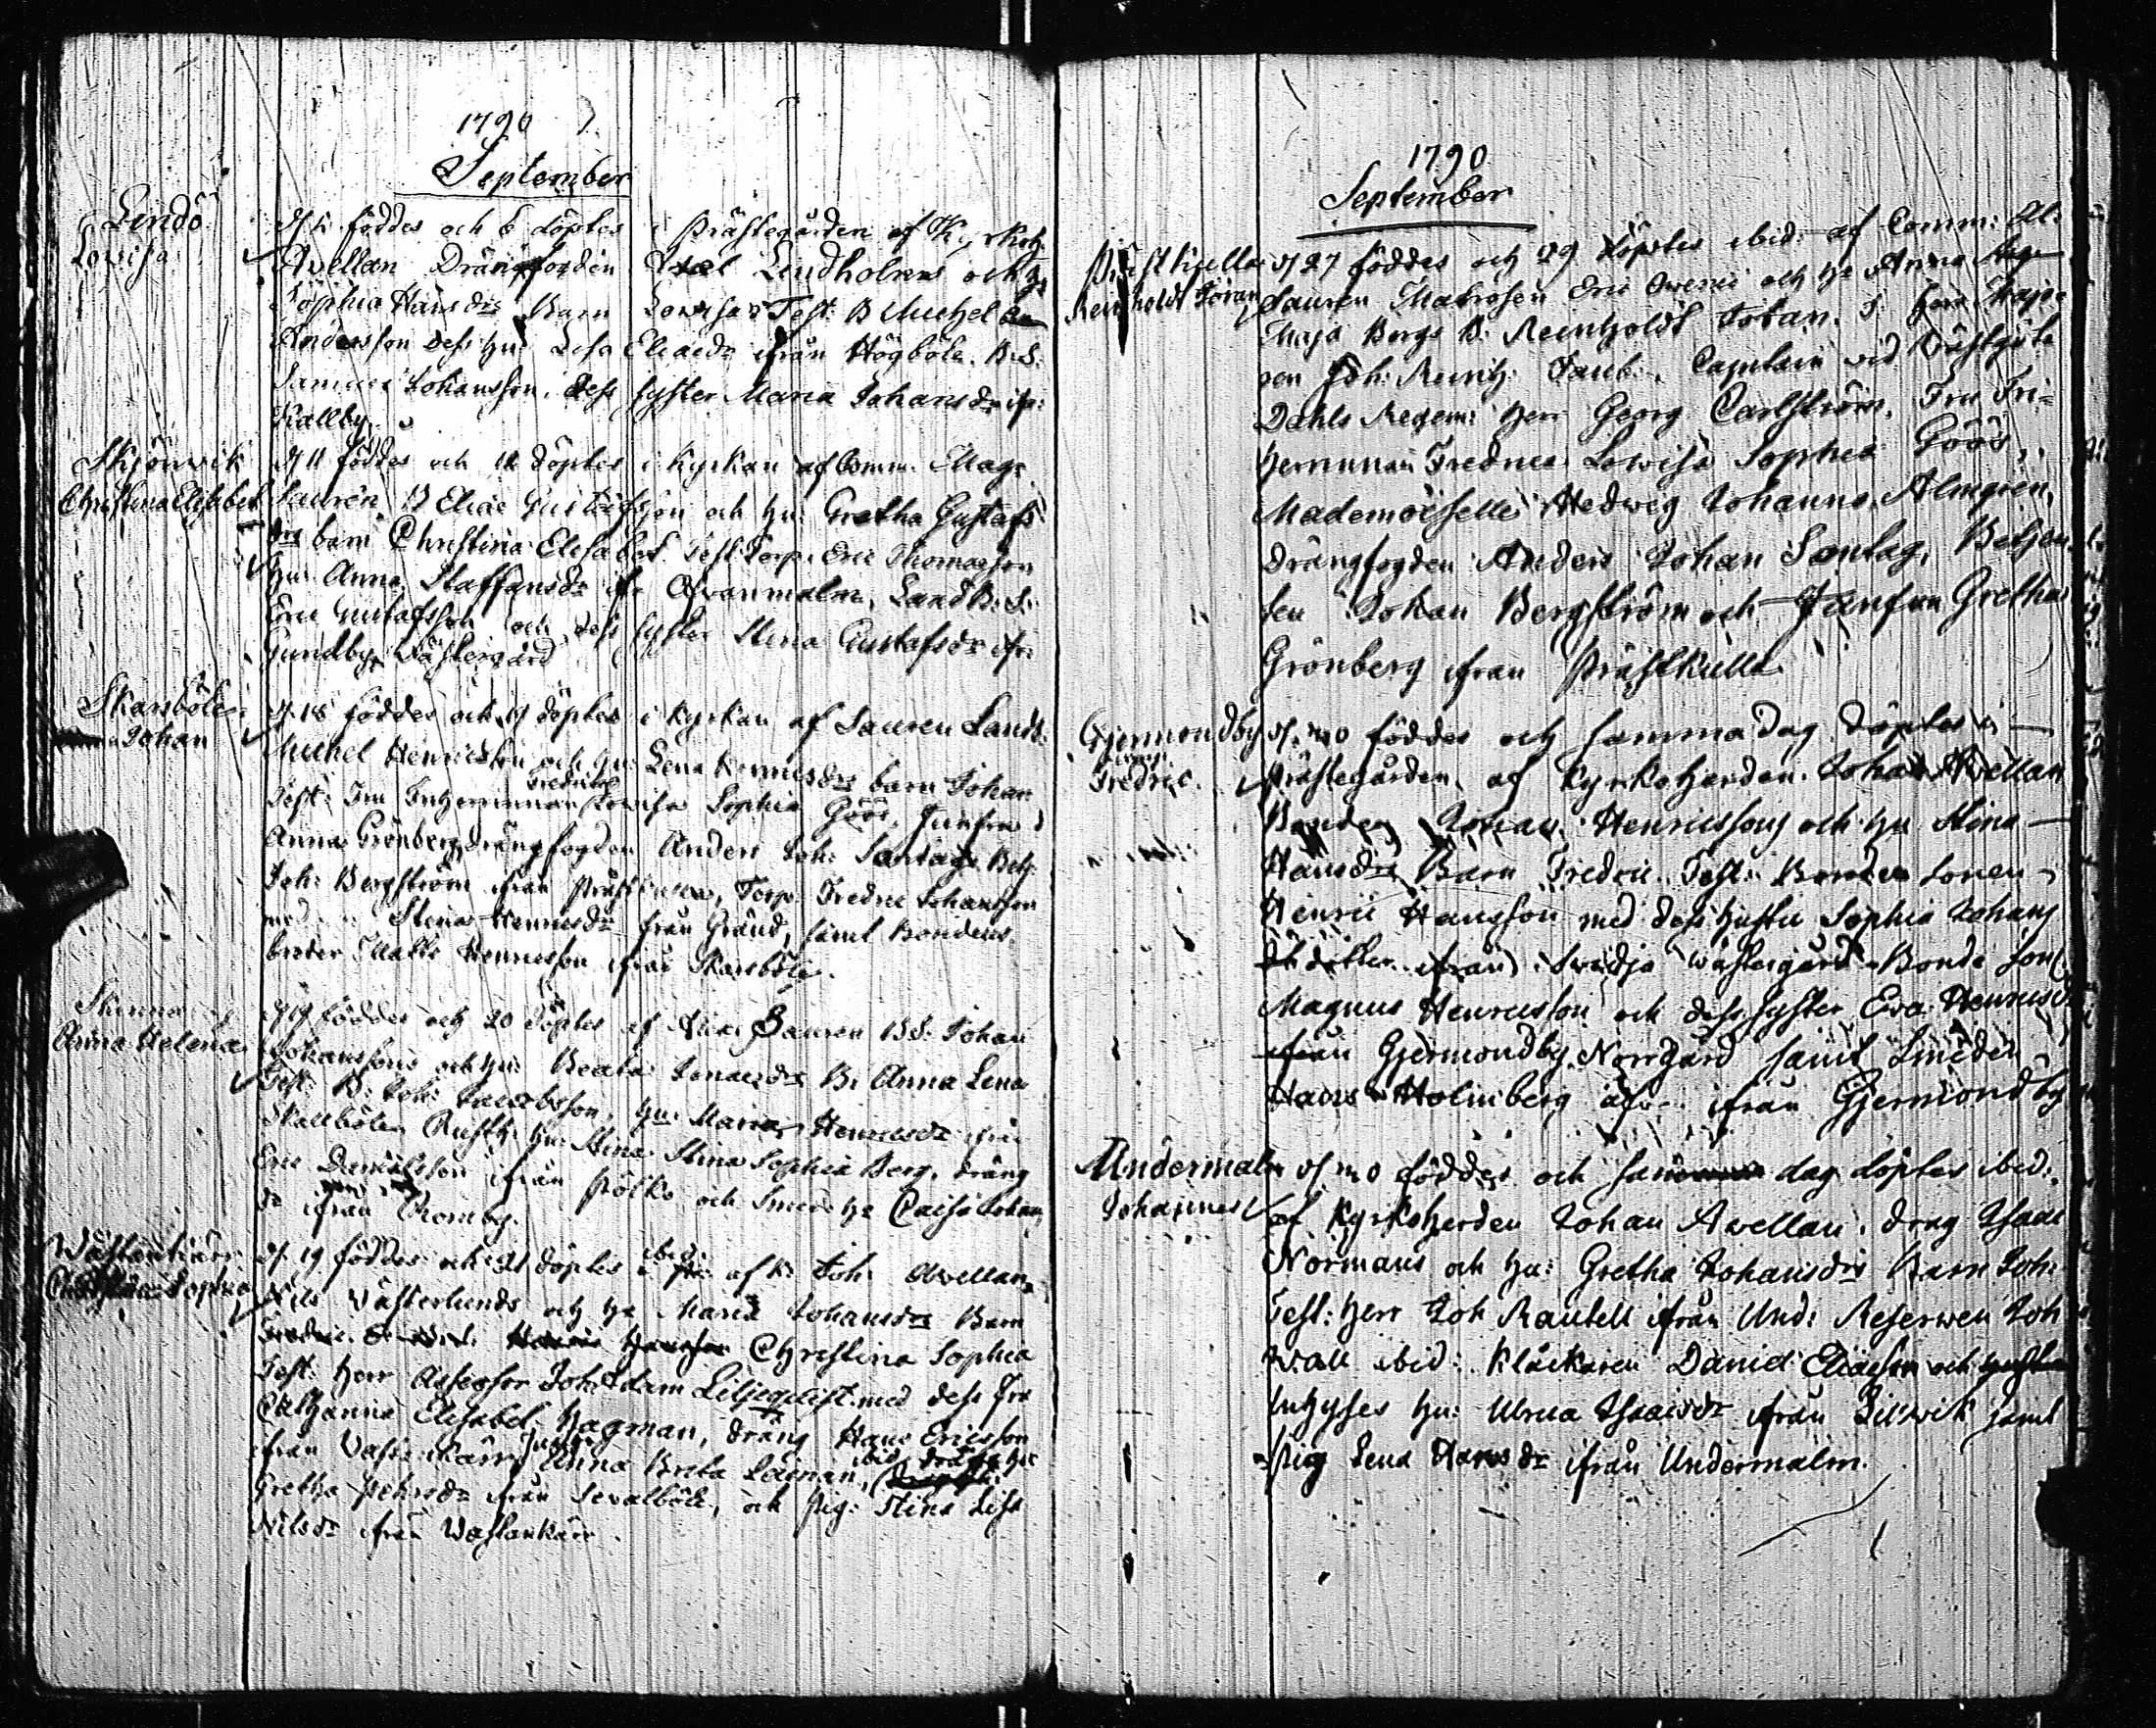 1790
September
Lindö
Lowisa
föddes och 6 döptes i Prästegården af Kyrkoh.
Avellan Drängfogden Lindholms och h:
Sophia Hansdrs Barn Lowisa Test: B Michel
Andersson dess hu: Lisa Eliaedr ifrån Högböle. B.S.
Samuel Johansson, dess syster Maria Johansdr ifr:
Kallby.
Skjönwik
Christina Elisabet
d 11 föddes och 12 döptes i Kyrkan af Comm. Mag:
Lauren, B Elias Gustafsson och hu: Gretha Gustafs
drs barn Christina Elisabet. Test: Torp. Eric Thomasson
hu: Anna Staffansdr fr Qvanmalm, Landb: S:
Eric Gustafsson och dess syster Stina Gustafsdr ifr:
Gundby Wästergård
Skarsböle
Johan
d 18 föddes och 19 döptes i Kyrkan af Lauren Landb:
Michel Henricsson och hu: Lena Henricsdrs barn Johan
Test: Fru Friherrinnan Fredrica Lowisa Sophia Göös, Junfru
Anna Grönberg, drängfogden Anders Joh: Sontag, Betj:
Joh: Bergström ifrån Prästkulla, Torp. Fredric Johansson
med Stina Henricsdr från Gränd, samt Bondens
broder Matts Henricsson ifrån Skarsböle.
Anna Helena
d 19 föddes och 20 döptes af Lauren BS. Johan
Johanssons och hu: Beata Jonaedrs B: Anna Lena
Test: B: Joh: Jacobsson, hu: Maria Henricsdr ifrån
Skallböle, Rusth: hu: Stina Stina Sophia Berg, dräng
Eric Danielsson ifrån Pölks och Smed: h: Caisa Johans
dr ifrån Thomby.
Wästankärr
Christina Sophia
d. 19 föddes och 21 döptes ibid: af K: Joh: Avellan,
Nils Västerlunds och h: Maria Johansdrs Barn
Christina Sophia
Test: Herr Assessor Joh: Adam Liljeqvist med dess Fru
Cathanna Elisabet Hagman, dräng Hans Ericsson
ifrån Väst:kärr, Junfr: Anna Brita Laiman, ibid, dräng hu:
Gretha Pehrsdr ifrån Sevalböle, och Pig: Stina Lisa
Nilsdr ifrån Wästankärr.
1790
September
Prästkulla
Reinholdt Johan
d 27 föddes och 29 döptes ibid: af Comm: Al:
Lauren Matrosen Eric Owenii och h: Anna
Maja Bergs B: Reinholdt Johan. T: Herr Majo-
ren Joh: Reinh: Taub:, Captain vid Västgöta
Dahls Regem: Herr Georg Carlström, Fru Fri-
herrinnan Fredrica Lowisa Sophia Göös,
Mademoiselle Hedwig Johanna Almgren,
Drängfogden Anders Johan Sontag, Betjen-
ten Johan Bergström och Junfrun Gretha
Grönberg ifrån Prästkulla.
Gjermondby
Fredric.
föddes och samma dag döptes i
Prästegården af Kyrkoherden Johan Avellan
Bonden Johan Henricssons och hu Stina
Hansdrs Barn Fredric Test: Bonden Sonen
Henric Hansson med dess hustru Sophia Johans
dotter ifrån Swidja Wästergård Bonde Son
Magnus Henricsson och dess syster Eva Henricsdr
ifrån Gjermondby Norrgård samt Smeden
Hans Holmberg äfv: ifrån Gjermondby
Undermalm
Johannes
föddes och samma dag döptes ibid:
af Kyrkoherden Johan Avellan, drag Isaac
Normans och hu: Gretha Johansdrs Barn Joh:
Test: Herr Joh Rautell ifrån Und: Reserven Joh
Wall ibid: Klåckaren Daniel Eliaesson och
Inhyses hu: Ulrica Isaacsdr ifrån Lillwik samt
Pig Lena Hansdr ifrån Undermalm.